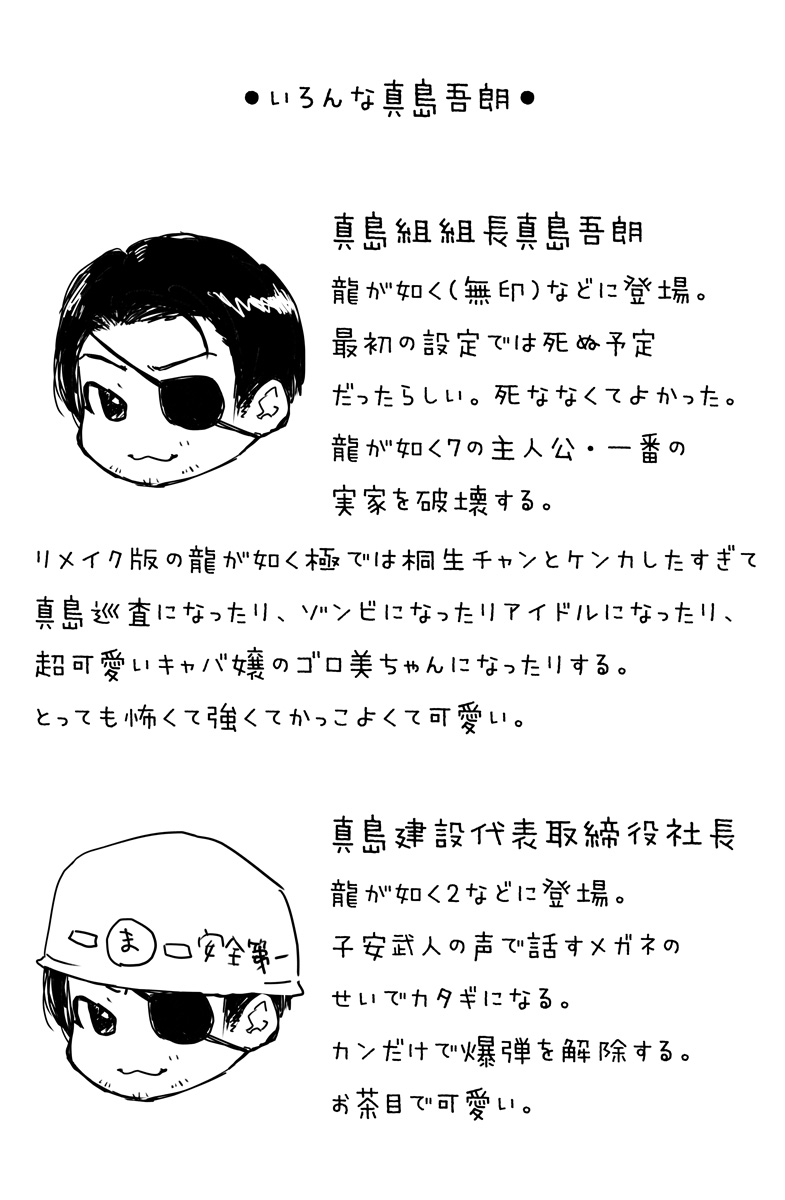 ●いろんな真島吾朗●
真島組組長真島吾朗
龍が如く(無印)などに登場。
最初の設定では死ぬ予定
だったらしい。死ななくてよかった。
龍が如く7の主人公・一番の
実家を破壊する。
リメイク版の龍が如く極では桐生チャンとケンカしたすぎて
真島巡査になったり、ゾンビになったりアイドルになったり、
超可愛いキャバ嬢のゴロ美ちゃんになったりする。
とっても怖くて強くてかっこよくて可愛い。
真島建設代表取締役社長
龍が如く2などに登場。
子安武人の声で話すメガネの
せいでカタギになる。
カンだけで爆弾を解除する。
お茶目で可愛い。
ま 安全第一